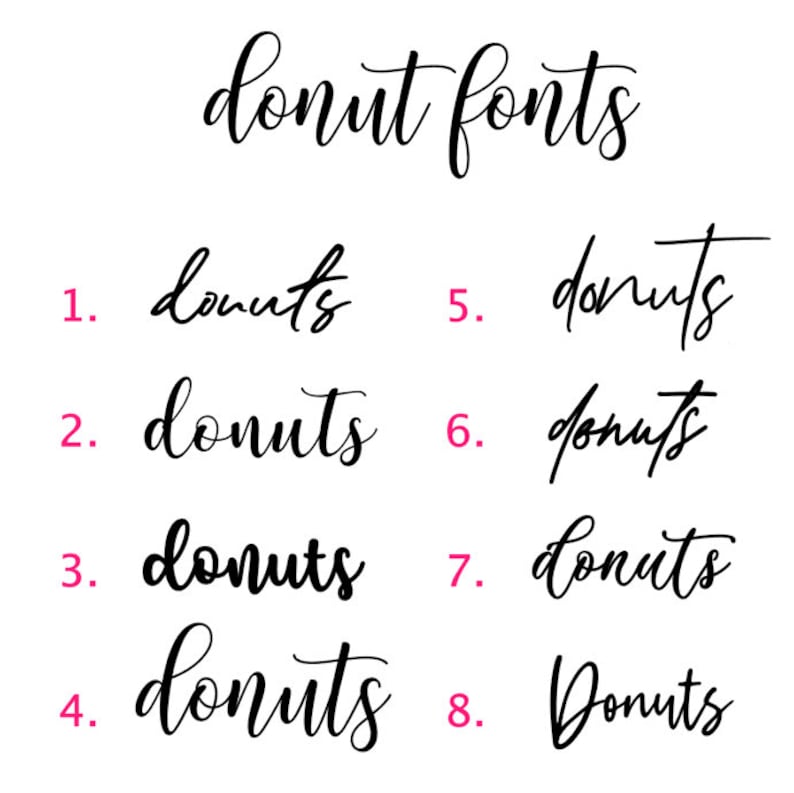 donut fonts
1. donuts
2. donuts
3. donuts
4. donuts
5. donuts
6. donuts
7. donuts
8. Donuts